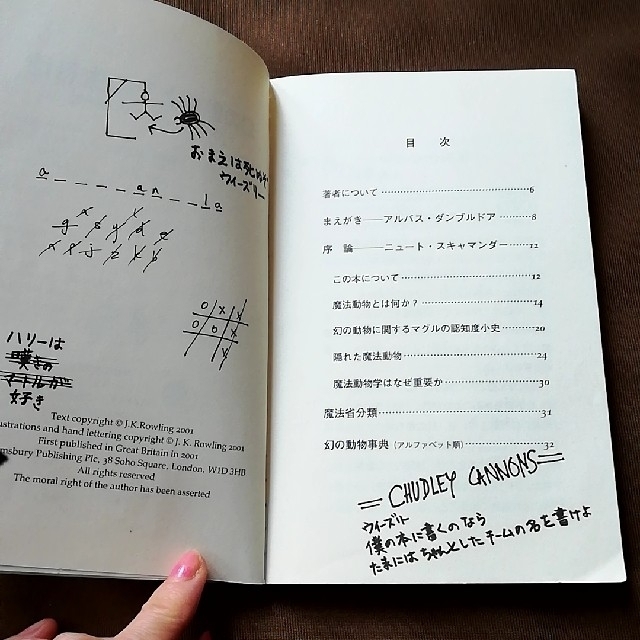 おまえは死ぬぞ
ウィーズリー
a _ _ _ _ a n _ _ l a
ハリーは
嘆きの
マートルが
好き
O X X
O O X
X
Text copyright © J.K.Rowling 2001
ustrations and hand lettering copyright © J. K. Rowling 2001
First published in Great Britain in 2001
msbury Publishing Plc, 38 Soho Square, London, W1D 3HB
All rights reserved
The moral right of the author has been asserted
目 次
著者について 6
まえがき──アルバス・ダンブルドア 8
序 論──ニュート・スキャマンダー 12
この本について 12
魔法動物とは何か? 14
幻の動物に関するマグルの認知度小史 20
隠れた魔法動物 24
魔法動物学はなぜ重要か 30
魔法省分類 31
幻の動物事典(アルファベット順) 32
= CHUDLEY CANNONS =
僕の本に書くのなら
たまにはちゃんとしたチームの名を書けよ